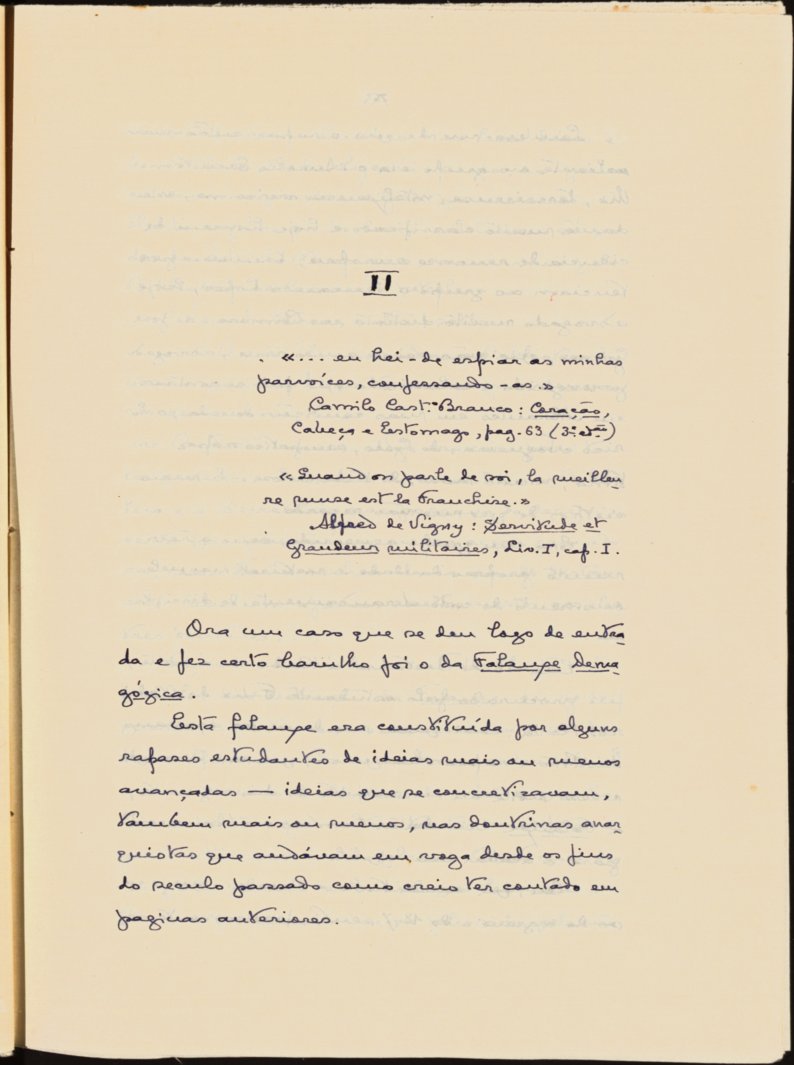 II
«... eu hei-de espiar as minhas
parvoíces, confessando-as.»
Camilo Cast.º Branco: Coração,
Cabeça e Estomago, pag. 63 (3.ª edᶜᵃᵒ)
«Quand on parle de soi, la meilleu-
re muse est la Franchise.»
Alfred de Vigny: Servitude et
Grandeur militaires, Liv. I, cap. I.
Ora um caso que se deu logo de entra-
da e fez certo barulho foi o da Falange Dema-
gógica.
Esta falange era constituída por alguns
rapases estudantes de ideias mais ou menos
avançadas — ideias que se concretizavam,
tambem mais ou menos, nas doutrinas anar-
quistas que andávam em voga desde os fins
do seculo passado como creio ter contado em
paginas anteriores.